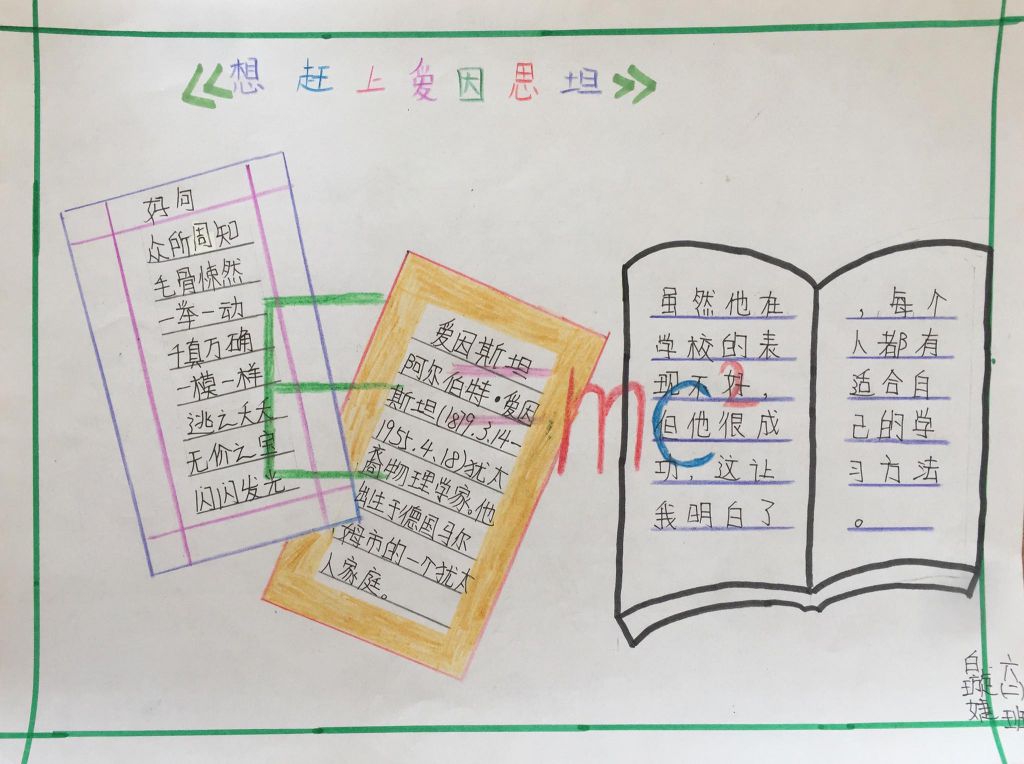 《想赶上爱因思坦》
好句
众所周知
毛骨悚然
一举一动
千真万确
一模一样
逃之夭夭
无价之宝
闪闪发光
E=mc²
爱因斯坦
阿尔伯特·爱因
斯坦(1879.3.14—
1955.4.18)犹太
裔物理学家。他
出生于德国乌尔
姆市的一个犹太
人家庭。
虽然他在
学校的表
现不好，
但他很成
功，这让
我明白了
，每个
人都有
适合自
己的学
习方法
。
六(二)班
白璇